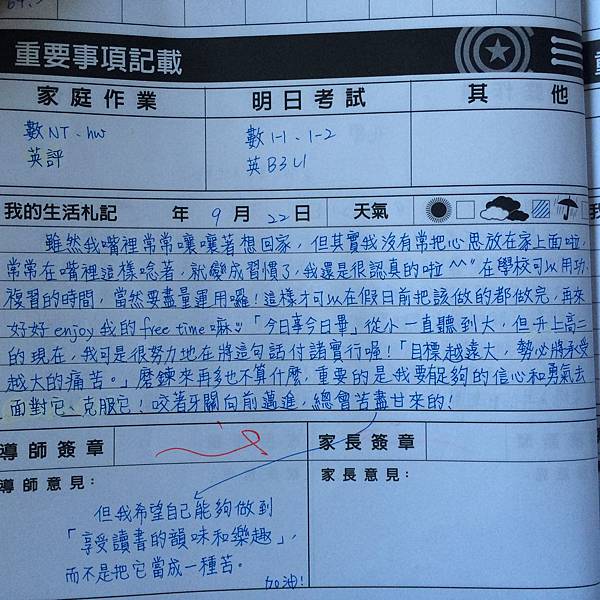 重要事項記載
家庭作業 明日考試 其他
數NT、hw 數1-1、1-2
英評 英B3U1
我的生活札記 年 9 月 22 日 天氣
雖然我嘴裡常常嚷嚷著想回家,但其實我沒有常把心思放在家上面啦,
常常在嘴裡這樣唸著,就變成習慣了,我還是很認真的啦^^" 在學校可以用功、
複習的時間,當然要盡量運用囉!這樣才可以在假日前把該做的都做完,再來
好好enjoy我的free time嘛「今日事今日畢」從小一直聽到大,但升上高二
的現在,我可是很努力地在將這句話付諸實行喔!「目標越遠大,勢必將承受
越大的痛苦。」磨鍊來再多也不算什麼,重要的是我要有足夠的信心和勇氣去
面對它、克服它!咬著牙關向前邁進,總會苦盡甘來的!
導師簽章 家長簽章
導師意見: 家長意見:
但我希望自己能夠做到
「享受讀書的韻味和樂趣」,
而不是把它當成一種苦。
加油!